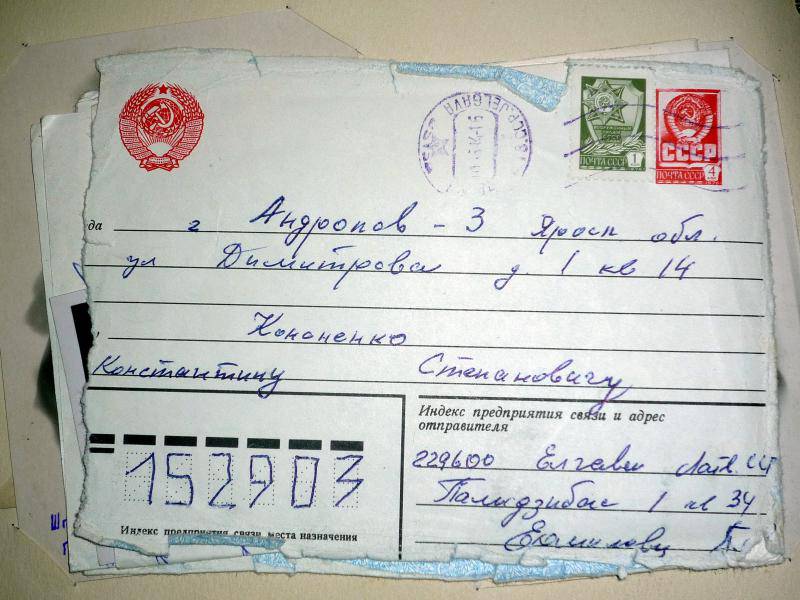 JELGAVA
1
ПОЧТА СССР
СССР
ПОЧТА СССР 4
да г Андропов - 3 Яросл обл.
ул Димитрова д. 1 кв 14
Кононенко
Константину Степановичу
Индекс предприятия связи и адрес
отправителя
229600 Елгава Латв.
1 кв 34
152903
Индекс предприятия связи места назначения